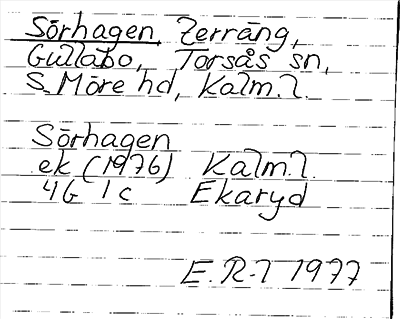 Sörhagen, terräng,
Gullabo, Torsås sn,
S. Möre hd, Kalm. l.
Sörhagen
ek (1976) Kalm. l.
4G 1c Ekaryd
E. R-T 1977